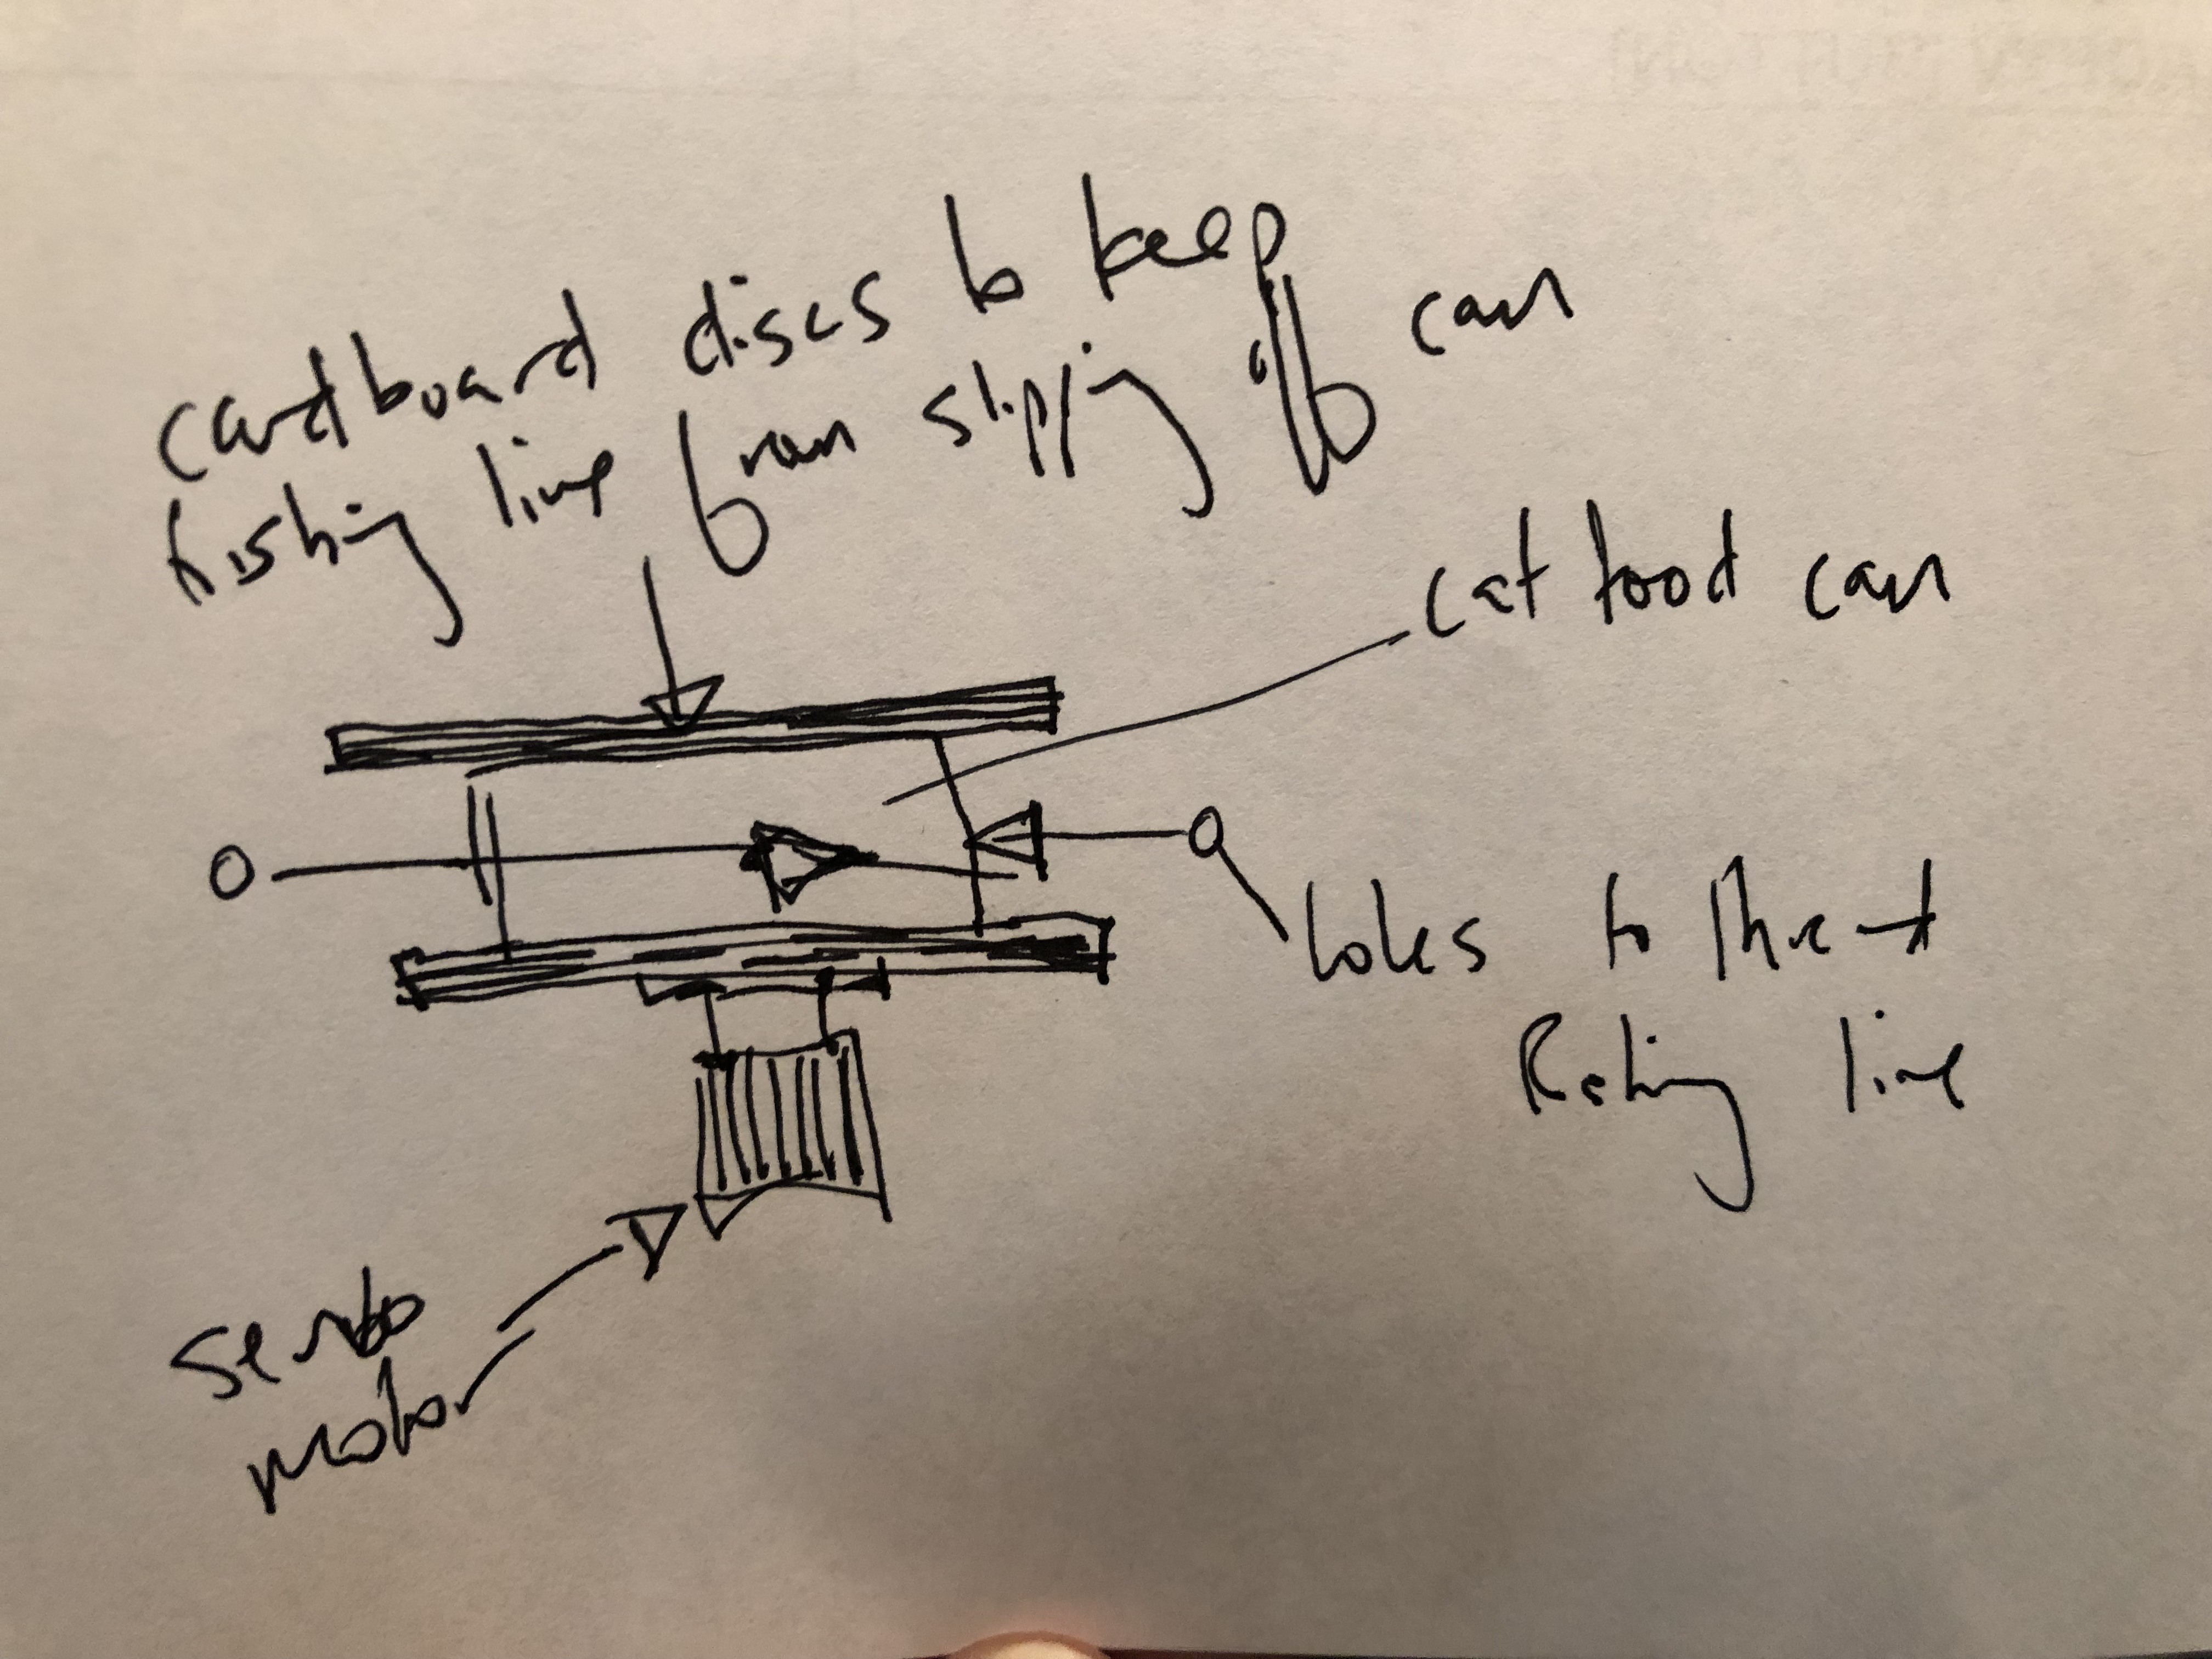 cardboard discs to keep
fishing line from slipping off can
cat food can
holes to thread
fishing line
servo
motor